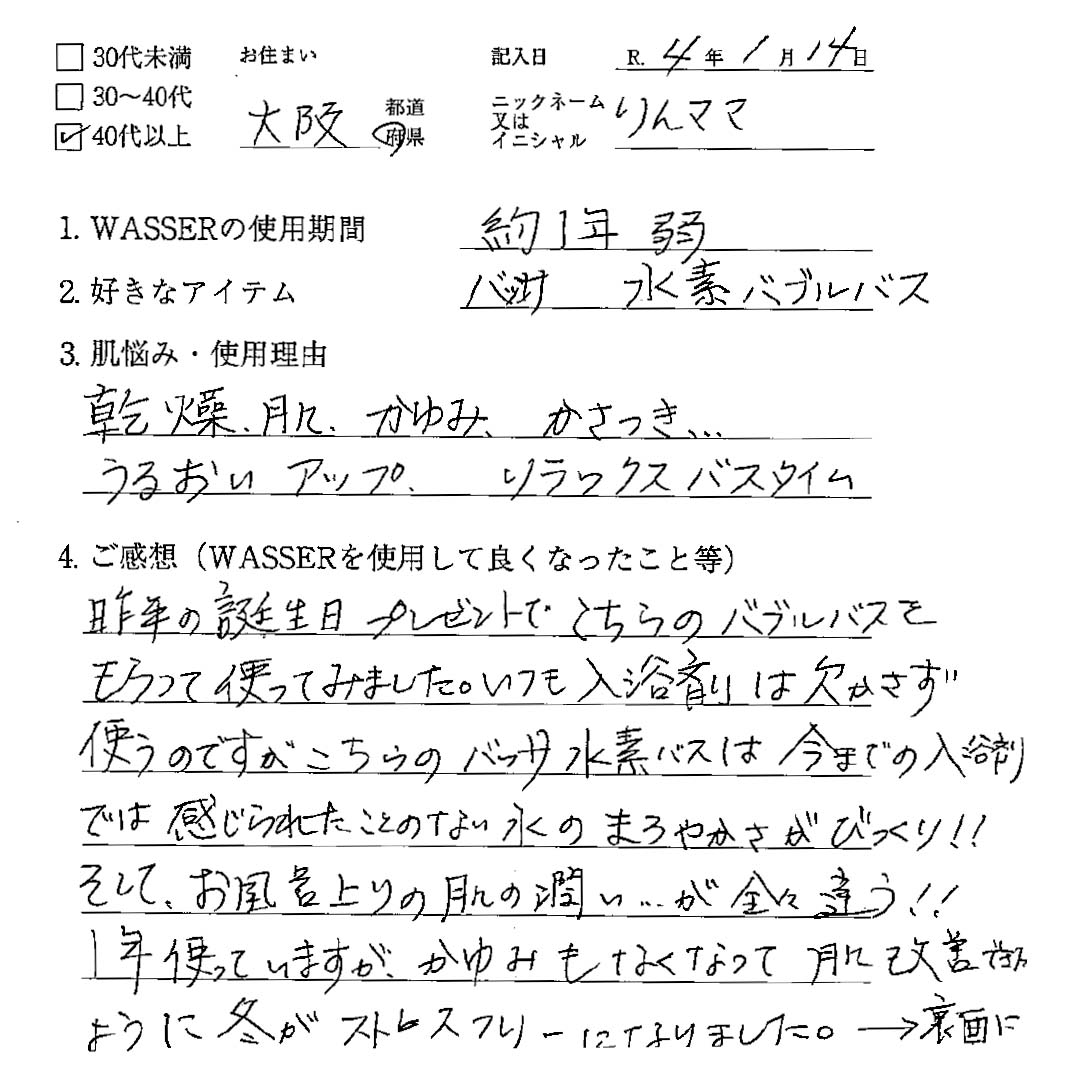 30代未満 お住まい 記入日 R. 4 年 1 月 14 日
30〜40代 大阪 都道府県 ニックネーム又はイニシャル りんママ
40代以上
1. WASSERの使用期間 約1年弱
2. 好きなアイテム バッサ 水素バブルバス
3. 肌悩み・使用理由
乾燥、肌、かゆみ、かさつき、…
うるおいアップ、 リラックスバスタイム
4. ご感想（WASSERを使用して良くなったこと等）
昨年の誕生日プレゼントでこちらのバブルバスを
もらって使ってみました。いつも入浴剤は欠かさず
使うのですがこちらのバッサ水素バスは今までの入浴剤
では感じられたことのない水のまろやかさがびっくり!!
そして、お風呂上りの肌の潤い…が全々違う!!
1年使っていますが、かゆみもなくなって肌改善
ように冬がストレスフリーになりました。→裏面に